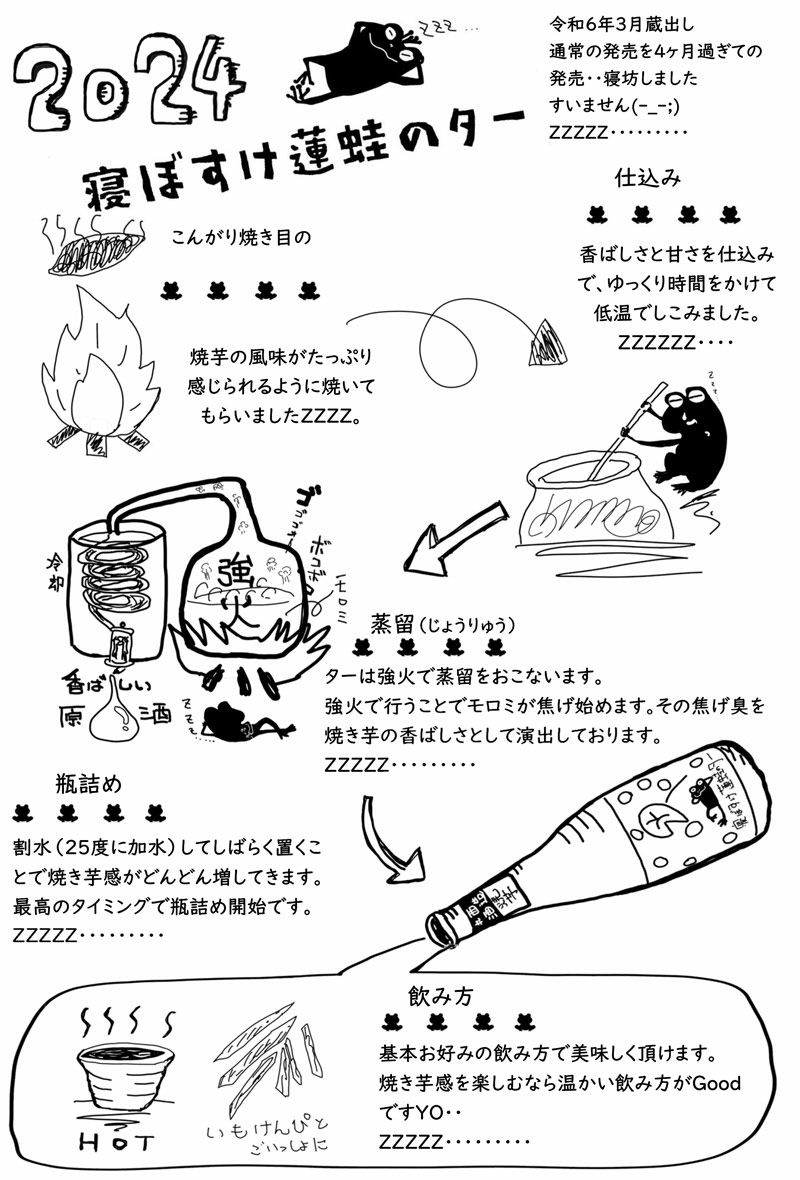 2024
zzz...
令和6年3月蔵出し
通常の発売を4ヶ月過ぎての
発売‥寝坊しました
すいません(-_-;)
ZZZZZ‥‥‥‥‥
寝ぼすけ蓮蛙のター
仕込み
こんがり焼き目の
香ばしさと甘さを仕込み
で、ゆっくり時間をかけて
低温でしこみました。
ZZZZZZ‥‥
焼芋の風味がたっぷり
感じられるように焼いて
もらいましたZZZZ。
zzz...
冷却
強火
ボコボコ
モロミ
香ばしい
原酒
zzz...
蒸留(じょうりゅう)
ターは強火で蒸留をおこないます。
強火で行うことでモロミが焦げ始めます。その焦げ臭を
焼き芋の香ばしさとして演出しております。
ZZZZZ‥‥‥‥‥
瓶詰め
割水(25度に加水)してしばらく置くこ
とで焼き芋感がどんどん増してきます。
最高のタイミングで瓶詰め開始です。
ZZZZZ‥‥‥‥‥
飲み方
基本お好みの飲み方で美味しく頂けます。
焼き芋感を楽しむなら温かい飲み方がGood
ですYO‥
ZZZZZ‥‥‥‥‥
HOT
いもけんぴと
ごいっしょに